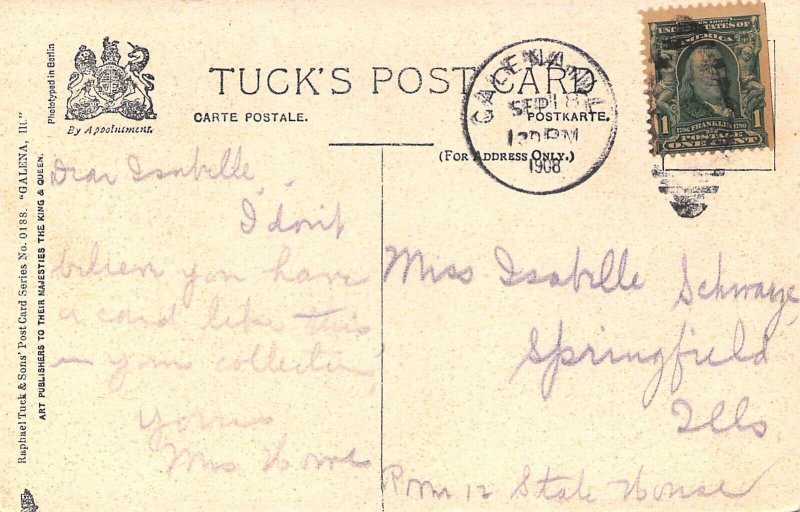 Phototyped in Berlin
By Appointment.
TUCK'S POST CARD
CARTE POSTALE.
POSTKARTE.
(FOR ADDRESS ONLY.)
GALENA, ILL
SEP 18
1 30 PM
1908
UNITED STATES OF AMERICA
1
1706 FRANKLIN 1790
POSTAGE
ONE CENT
Raphael Tuck & Sons' Post Card Series No. 0188. "GALENA, Ill."
ART PUBLISHERS TO THEIR MAJESTIES THE KING & QUEEN.
Dear Isabelle,
I don't
believe you have
a card like this
in your collection
Yours
Mrs Howe
Miss Isabelle
Springfield
Ills
Rom 12 State House